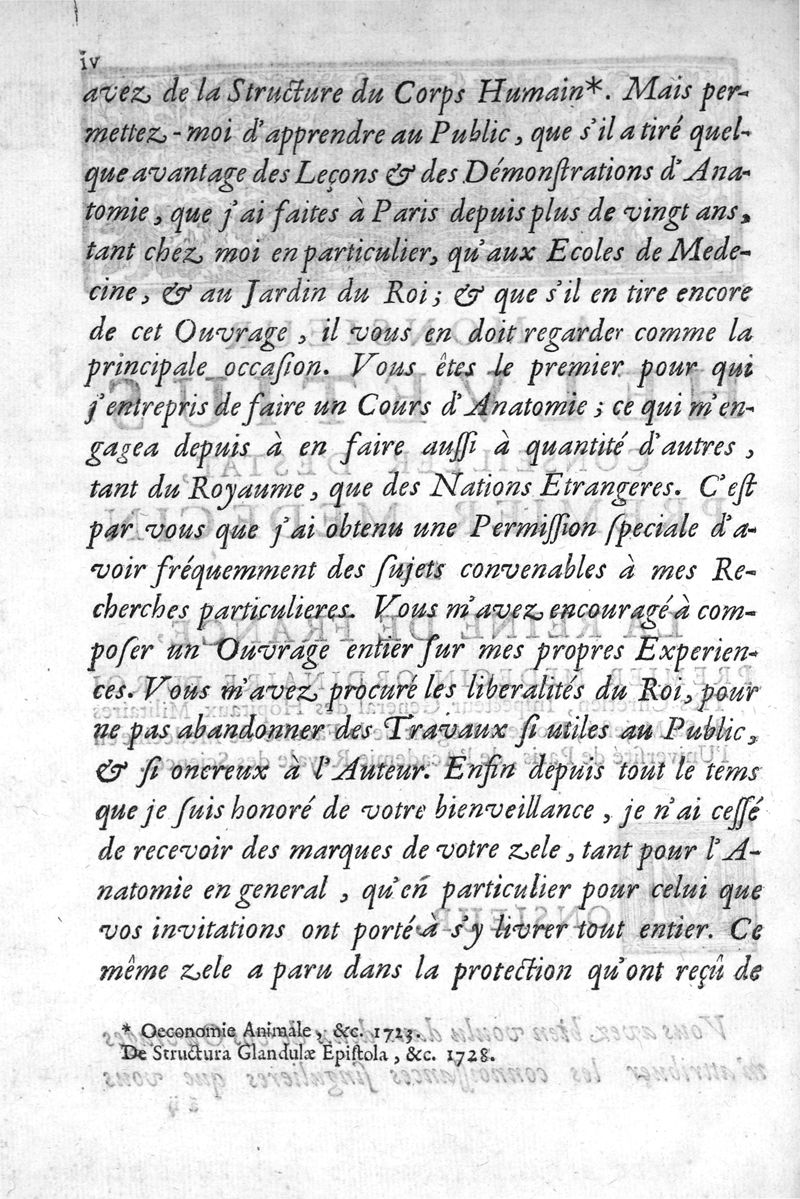 iv
avez de la Structure du Corps Humain*. Mais per-
mettez-moi d'apprendre au Public, que s'il a tiré quel-
que avantage des Leçons & des Démonſtrations d'Ana-
tomie, que j'ai faites à Paris depuis plus de vingt ans,
tant chez moi en particulier, qu'aux Ecoles de Mede-
cine, & au Jardin du Roi; & que s'il en tire encore
de cet Ouvrage, il vous en doit regarder comme la
principale occaſion. Vous êtes le premier pour qui
j'entrepris de faire un Cours d'Anatomie; ce qui m'en-
gagea depuis à en faire auſſi à quantité d'autres,
tant du Royaume, que des Nations Etrangeres. C'eſt
par vous que j'ai obtenu une Permiſſion ſpeciale d'a-
voir fréquemment des ſujets convenables à mes Re-
cherches particulieres. Vous m'avez encouragé à com-
poſer un Ouvrage entier ſur mes propres Experien-
ces. Vous m'avez procuré les liberalités du Roi, pour
ne pas abandonner des Travaux ſi utiles au Public,
& ſi onereux à l'Auteur. Enfin depuis tout le tems
que je ſuis honoré de votre bienveillance, je n'ai ceſſé
de recevoir des marques de votre zele, tant pour l'A-
natomie en general, qu'en particulier pour celui que
vos invitations ont porté à s'y livrer tout entier. Ce
même zele a paru dans la protection qu'ont reçû de
* Oeconomie Animale, &c. 1723.
De Structura Glandulæ Epiſtola, &c. 1728.